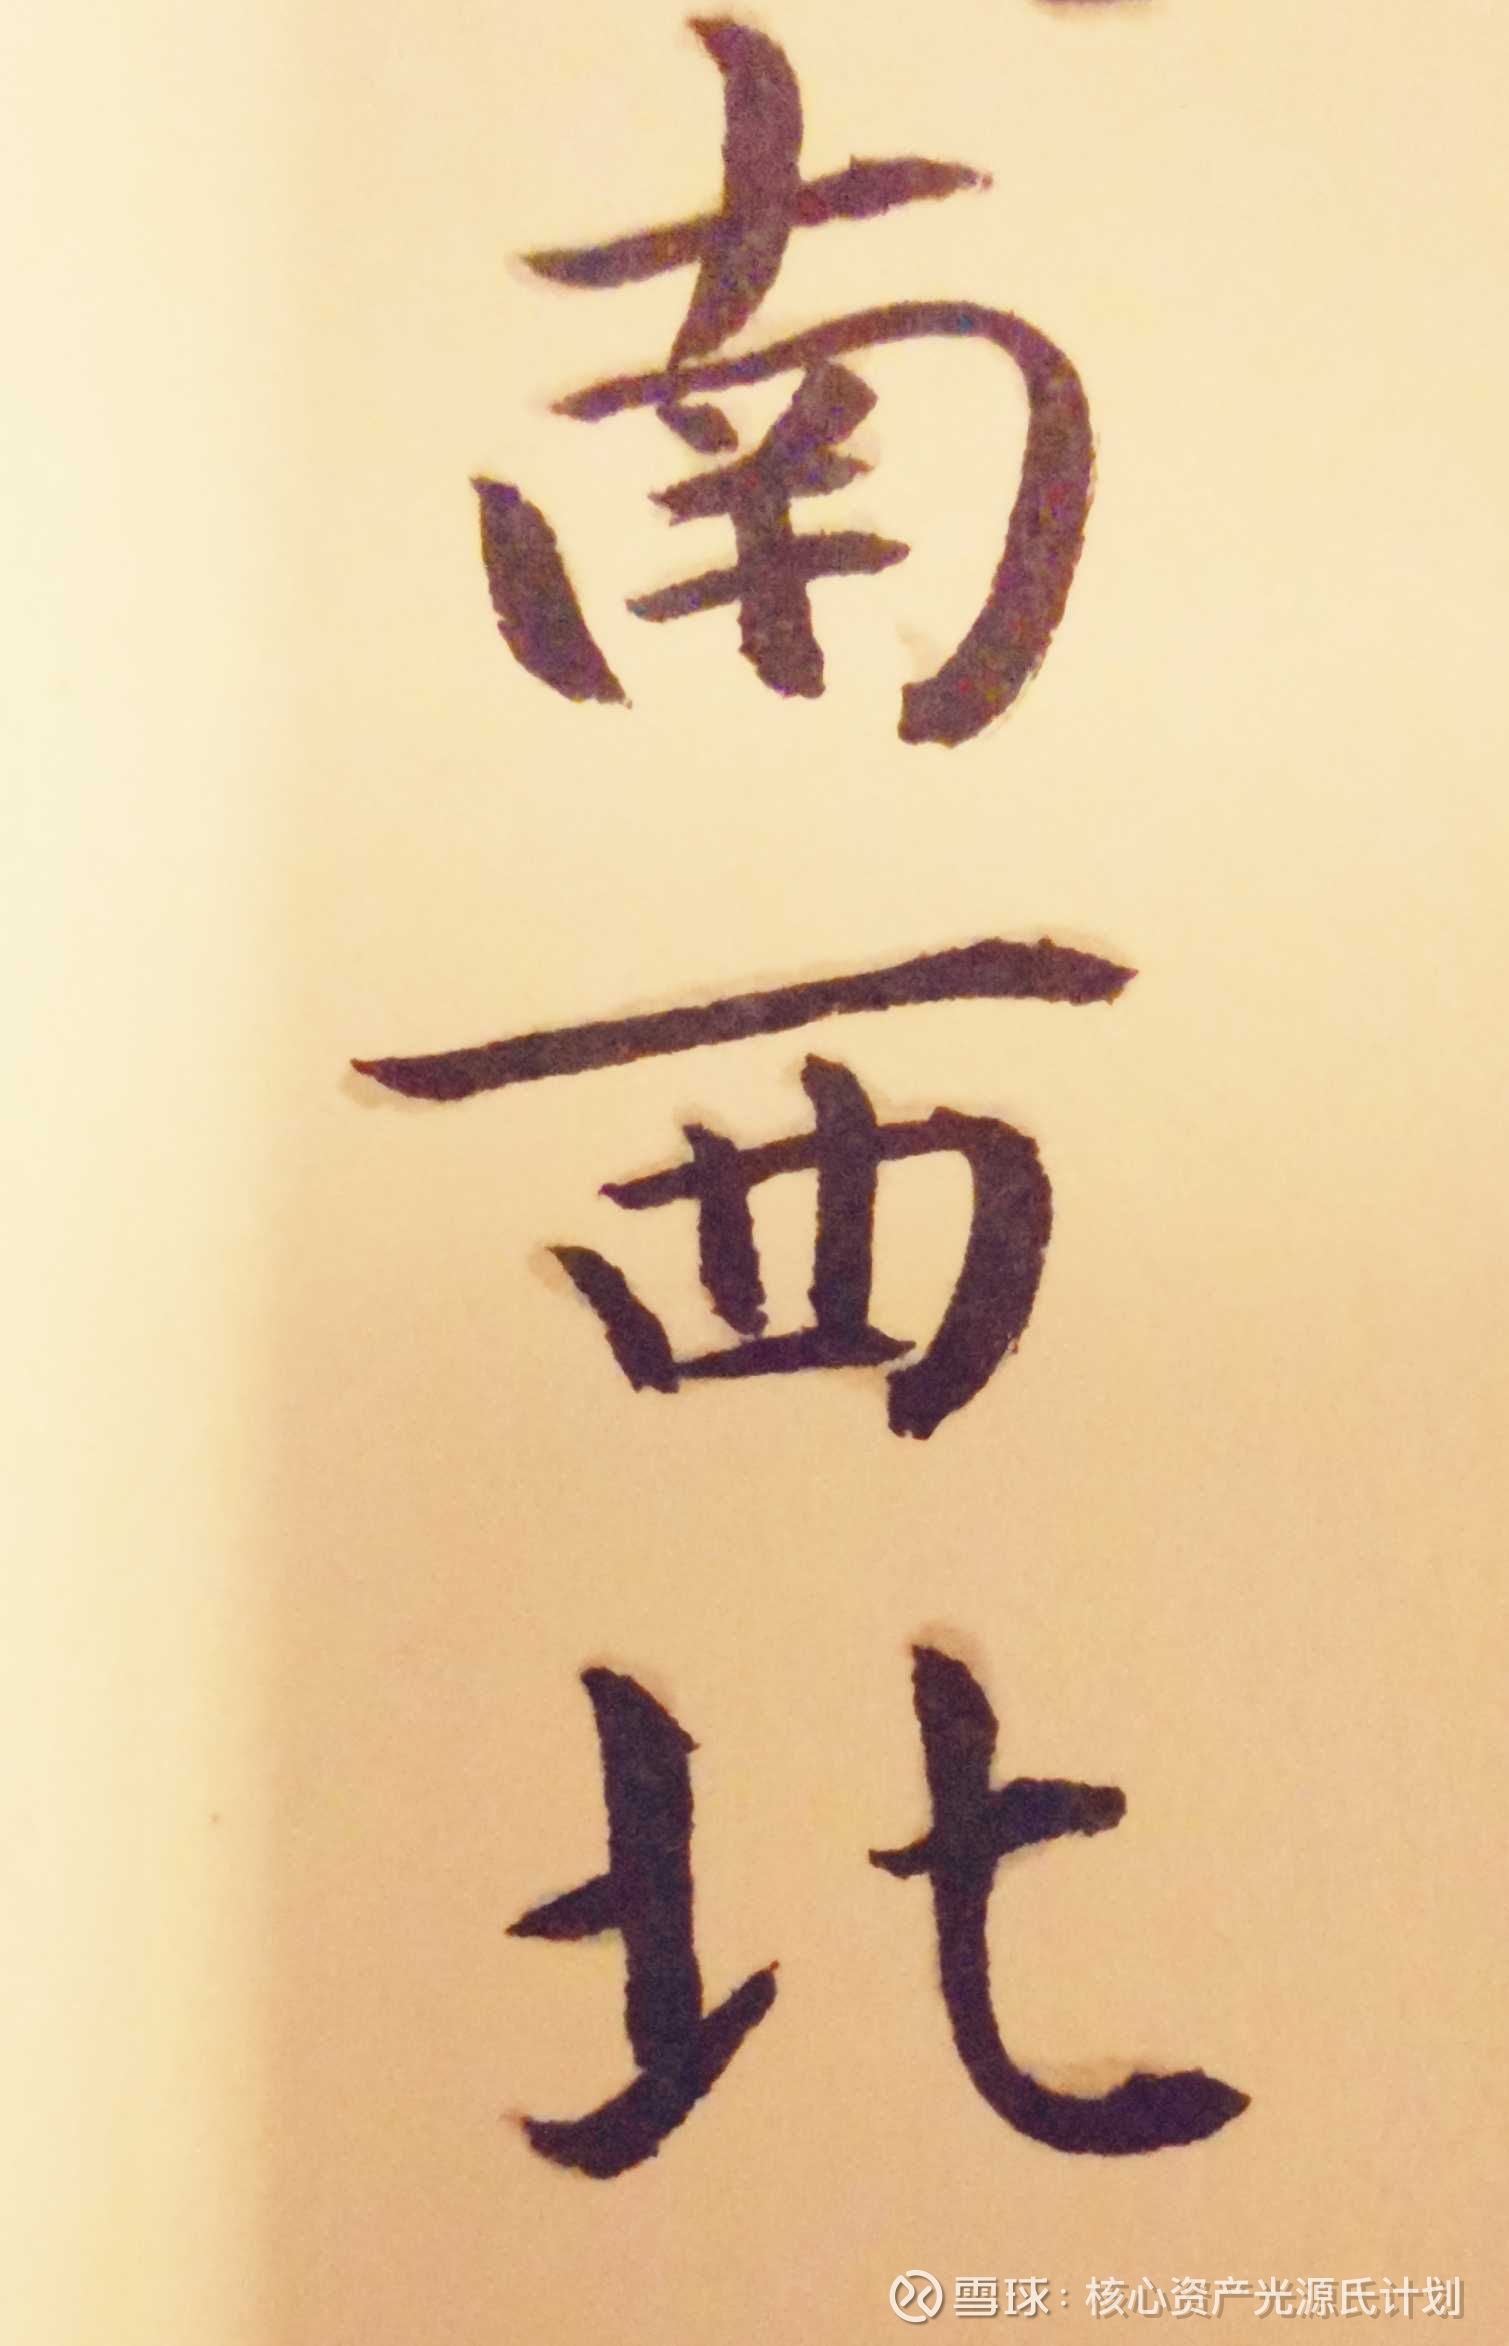 南西北
雪球：核心资产光源氏计划